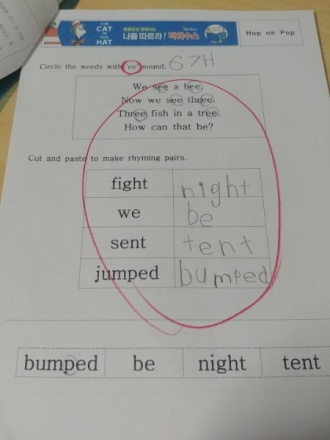 THE CAT IN THE HAT
나를 따르라! 닥터수스
Hop on Pop
Circle the words with 'ee' sound. 67H
We see a bee.
Now we see three.
Three fish in a tree.
How can that be?
Cut and paste to make rhyming pairs.
fight night
we be
sent tent
jumped bumped
bumped be night tent